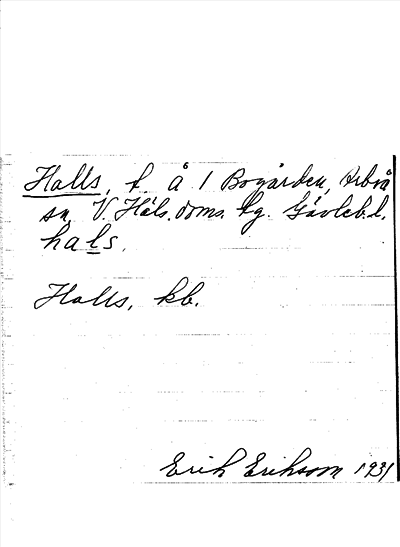 Halls, t. å 1 Bogården, Arbrå
sn V. Häls. doms. tg. Gävleb. l.
hals.
Halls, kb.
Erik Erikson 1931